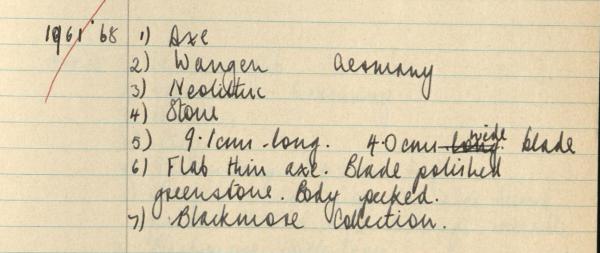 1961·68 1) Axe
2) Wangen Germany
3) Neolithic
4) Stone
5) 9.1cm long. 4.0cm long wide blade
6) Flat thin axe. Blade polished
greenstone. Body pecked.
7) Blackmore Collection.